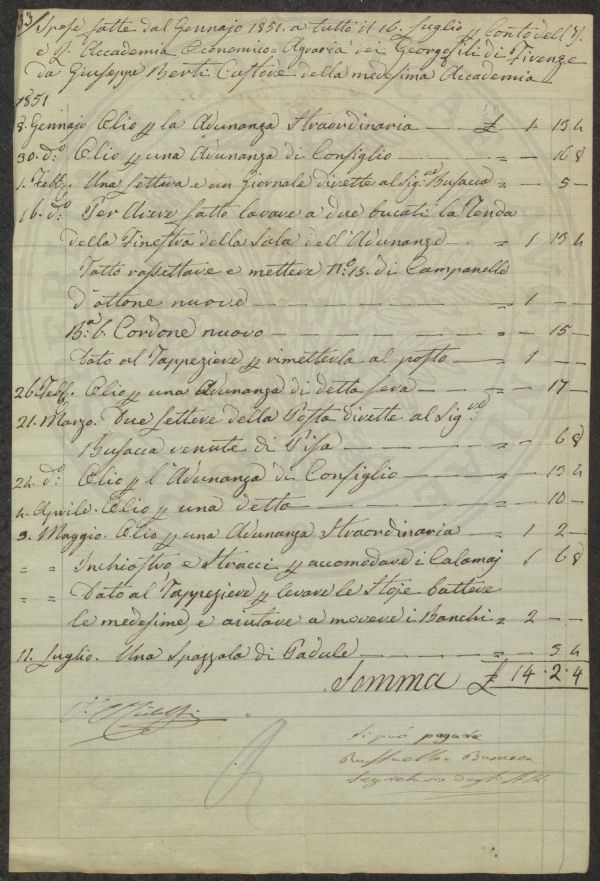 33/ Spese fatte dal Gennajo 1851. a tutto il 16. Luglio p Conto dell' I.
e R. Accademia Economico=Agraria dei Georgofili di Firenze
da Giuseppe Berti Custode della medesima Accademia
1851
8. Gennajo Olio p la Adunanza Straordinaria — £ 1 13 4
30. do Olio p una Adunanza di Consiglio — = 16 8
1. Febbo. Una Lettera e un Giornale dirette al Sig.re Busacca = 5 —
16. do Per Avere fatto lavare a due bucati la Tenda
della Finestra della Sala dell' Adunanze — = 1 13 4
Fatto rassettare e mettere No. 13. di Campanelle
d'ottone nuove — = 1 —
Ba. 6. Cordone nuovo — = 15 —
Dato al Tappeziere p rimetterla al posto — = 1 —
26. Febbo. Olio p una Adunanza di detta sera — = 17 —
21. Marzo. Due Lettere della Posta dirette al Sig.re
Busacca venute di Pisa — = 6 8
24. do Olio p l'Adunanza di Consiglio — = 13 4
4. Aprile. Olio p una detta — = 10 —
3. Maggio. Olio p una Adunanza Straordinaria — = 1 2 —
= = Inchiostro e Stracci p accomodare i Calamaj 1 6 8
= = Dato al Tappeziere p levare le Stoje battere
le medesime, e aiutare a movere i Banchi = 2 — —
11. Luglio. Una Spazzola di Padule — 3 4
Somma £ 14.2.4
si può pagare
Raffaello Busacca
Segretario degli Atti